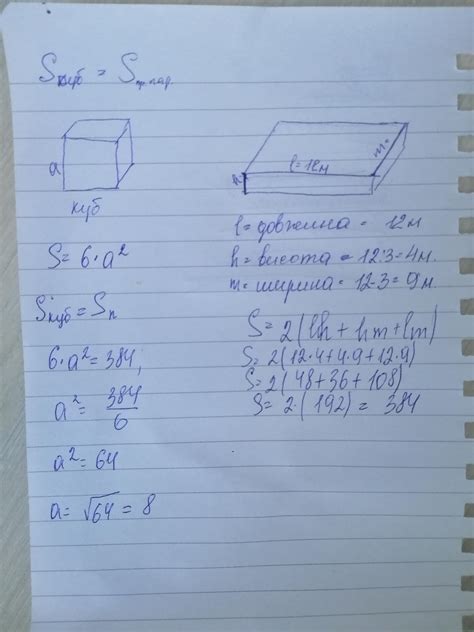 Sкуб = Sпр.пад.
a
куб
S = 6·a²
Sкуб = Sп
6·a² = 384,
a² = 384/6
a² = 64
a = √64 = 8
l = 12м
m
h
l = довжина = 12м
h = висота = 12:3=4м.
m = ширина = 12-3=9м.
S = 2(lh + hm + lm)
S = 2(12·4+4·9+12·9)
S = 2(48+36+108)
S = 2·(192) = 384